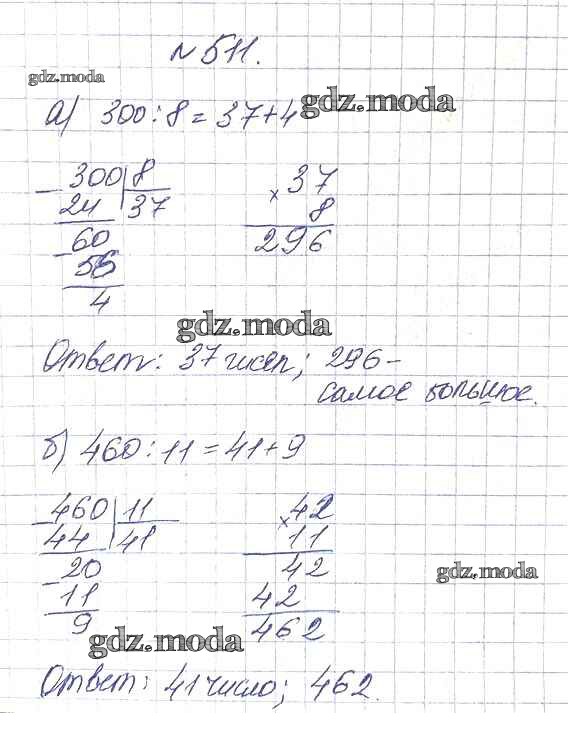 №511.
gdz.moda
а) 300:8=37+4 gdz.moda
300 8
37
24
60
56
4
37
× 8
296
gdz.moda
Ответ: 37 чисел; 296-
самое большое.
б) 460:11=41+9
460 11
44 41
20
11
9
42
× 11
42
42
462
gdz.moda
gdz.moda
Ответ: 41 число; 462.